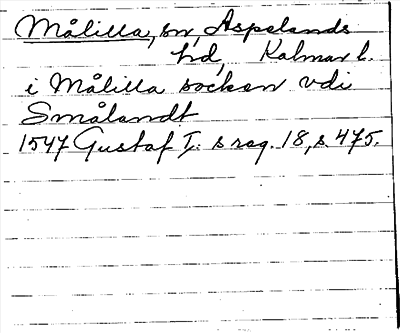 Målilla, sn, Aspelands
hd, Kalmar l.
i Målilla socken vdi
Smålandt
1547 Gustaf I:s reg. 18, s. 475.